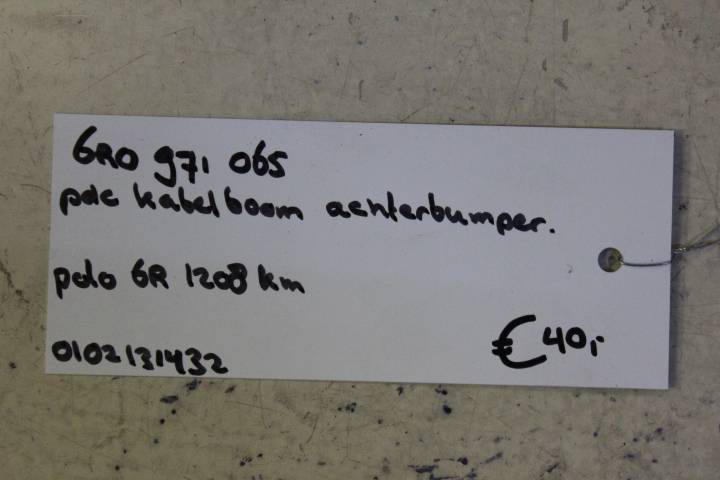 6R0 971 065
pdc kabelboom achterbumper.
polo 6R 1208 km
0102131432
€40,-